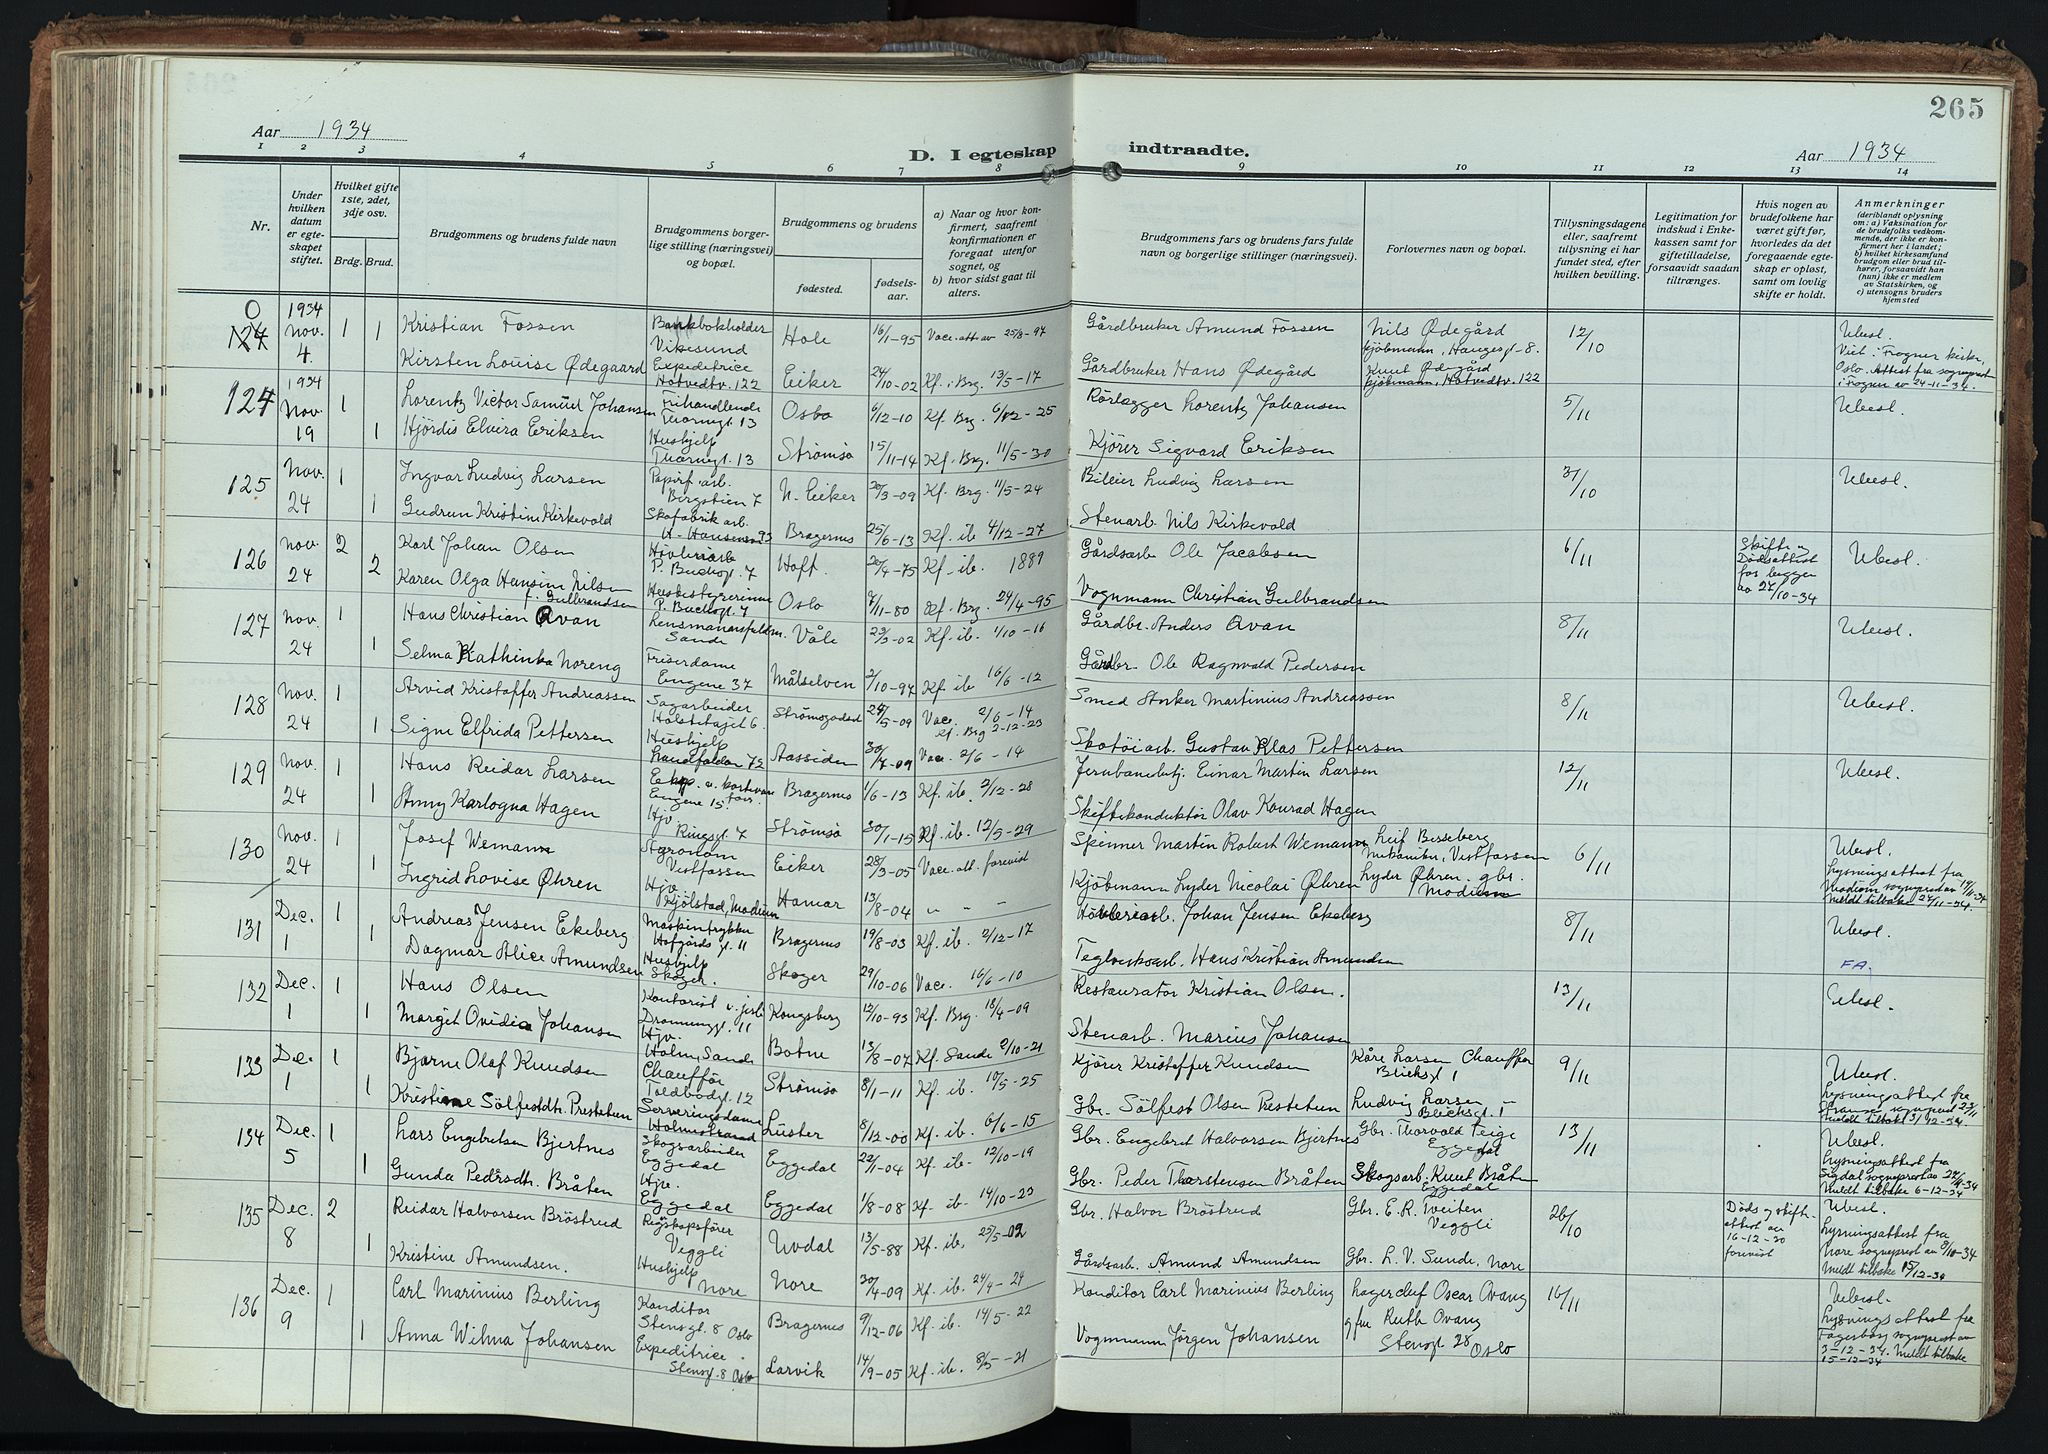 265
Aar 1934
D. I egteskap indtraadte.
Aar 1934
1 2 3 4 5 6 7 8 9 10 11 12 13 14
Nr.
Under hvilken datum er egteskapet stiftet.
Hvilket gifte 1ste, 2det, 3dje osv.
Brdg. Brud.
Brudgommens og brudens fulde navn
Brudgommens borgerlige stilling (næringsvei) og bopæl.
Brudgommens og brudens
fødested.
fødselsaar.
a) Naar og hvor konfirmert, saafremt konfirmationen er foregaat utenfor sognet, og
b) hvor sidst gaat til alters.
Brudgommens fars og brudens fars fulde navn og borgerlige stillinger (næringsvei).
Forlovernes navn og bopæl.
Tillysningsdagene eller, saafremt tillysning ei har fundet sted, efter hvilken bevilling.
Legitimation for indskud i Enkekassen samt for giftetilladelse, forsaavidt saadan tiltrænges.
Hvis nogen av brudefolkene har været gift før, hvorledes da det foregaaende egteskap er opløst, samt om lovlig skifte er holdt.
Anmerkninger
(deriblandt oplysning om: a) Vaksination for de brudefolks vedkommende, der ikke er konfirmert her i landet;
b) hvilket kirkesamfund brudgom eller brud tilhører, forsaavidt han (hun) ikke er medlem av Statskirken, og
c) utensogns bruders hjemsted
0 124 1934 Nov. 4 1 1 Kristian Fossen Bankbokholder Vikesund Hole 16/1-95 Vacc. att. av 25/8-97 Gårdbruker Amund Fossen Nils Ødegård kjöbmann, Haugesgt-8. 12/10 Ubesl.
Kirsten Louise Ødegaard Expeditrice Hotvedtv. 122 Eiker 24/10-02 Kf. i Brg. 13/5-17 Gårdbruker Hans Ødegård Knut Ødegård kjöbmann, Hotvedtv. 122 Viet i Frogner kirke, Oslo. Attest fra sogneprest i Frogner av 24-11-34.
124 1934 Nov. 19 1 1 Lorentz Victor Samuel Johansen Frihandlende Tuorngt. 13 Oslo 6/12-10 Kf. Brg. 6/12-25 Rörlegger Lorentz Johansen 5/11 Ubesl.
Hjördis Elvira Eriksen Hushjelp Tuorngt. 13 Strømsø 15/11-14 Kf. Brg. 11/5-30 Kjörer Sigvard Eriksen
125 Nov. 24 1 1 Ingvar Ludvig Larsen Papirf. arb. Bergstien 7 N. Eiker 20/3-09 Kf. Brg. 11/5-24 Bileier Ludvig Larsen 31/10 Ubesl.
Gudrun Kristine Kirkevold Skofabrik arb. H. Hansensv 93 Bragernes 25/6-13 Kf. ib 4/12-27 Stenarb. Nils Kirkevold
126 Nov. 24 2 2 Karl Johan Olsen Høvleriarb P. Buchsgt. 7 Hoff. 20/4-75 Kf. ib. 1889 Gårdsarb Ole Jacobsen 6/11 Skifte og Dödsattest for begge av 27/10-34 Ubesl.
Karen Olga Hansine Nilsen f. Gulbrandsen Husbestyrerinne P. Buchsgt. 7 Oslo 7/11-80 Kf. Brg. 24/4-95 Vognmann Christian Gulbrandsen
127 Nov. 24 1 1 Hans Christian Qvan Lensmannsfuldm. Sande Våle 23/3-02 Kf. ib. 1/10-16 Gårdbr. Anders Qvan 8/11 Ubesl.
Selma Kathinka Noreng Friserdame Engene 37 Målselven 2/10-97 Kf. ib 16/6-12 Gårdbr. Ole Ragnvald Pedersen
128 Nov. 24 1 1 Arvid Kristoffer Andreassen Sagarbeider Holstehagt 6 Strømsgodset 24/5-09 Vac. 2/6-14 Kf. Brg 2-12-23 Smed Storker Martinius Andreassen 8/11 Ubesl.
Signe Elfrida Pettersen Hushjelp Landfalløn 72 Aassiden 30/7-09 Vacc. 2/6-14 Skotöiarb. Gustav Klas Pettersen
129 Nov. 24 1 1 Hans Reidar Larsen Eksp. v. Engene 15 Bragernes 1/6-13 Kf. ib. 2/12-28 Jernbanebetj. Einar Martin Larsen 12/11 Ubesl.
Anny Karlogna Hagen Hjv. Ringsgt. 7 Strømsø 30/1-15 Kf. ib. 12/5-29 Skiftekonduktör Olav Konrad Hagen
130 Nov. 24 1 1 Josef Wemann Agronom Vestfossen Eiker 28/3-05 Vacc. att. forevist Skinner Martin Robert Wemann Leif Berseberg Mekaniker, Vestfossen 6/11 Ubesl.
Ingrid Lovise Øhren Hjv. Kjölstad, Modum Hamar 13/8-04 " " " Kjöbmann Lyder Nicolai Øhren Lyder Øhren. gbr. Modum Lysningsattest fra Modum sogneprest av 19/11-34 Meldt tilbake 24/11-34.
131 Dec. 1 1 1 Andreas Jensen Ekeberg Maskintrykker Hofgårds gt. 11 Bragernes 19/8-03 Kf. ib. 2/12-17 Høvleriarb. Johan Jensen Ekeberg 8/11 Ubesl.
Dagmar Alice Amundsen Hushjelp Skoger. Skoger 29/10-06 Vacc. 16/6-10 Teglverksarb. Hans Kristian Amundsen FA.
132 Dec. 1 1 1 Hans Olsen Kontorist v. jerb. Dronninggt. 11 Kongsberg 12/10-93 Kf. Brg. 18/4-09 Restauratör Kristian Olsen. 13/11 Ubesl.
Margit Ovidia Johansen Hjv. Holm, Sande Botne 13/8-07 Kf. Sande 2/10-21 Stenarb. Marius Johansen
133 Dec. 1 1 1 Bjarne Olaf Knudsen Chauffør Toldbodgt. 12 Strømsø 8/1-11 Kf. ib. 10/5-25 Kjörer Kristoffer Knudsen Kåre Larsen Chauffør Blichsgt 1 9/11 Ubesl.
Kristine Sölfestdtr. Prestetun Serveringsdame Holmestrand Luster 8/12-00 Kf. ib. 6/6-15 Gbr. Sölfest Olsen Prestetun Ludvig Larsen Blichsgt. 1 Lysningsattest fra sogneprest 23/11 Meldt tilbakt 3/12-34.
134 Dec. 5 1 1 Lars Engebretsen Bjertnes Skogsarbeider Eggedal Eggedal 22/1-04 Kf. ib. 12/10-19 Gbr. Engebret Halvorsen Bjertnes Gbr. Thorvald Teige Eggedal 13/11 Ubesl.
Gunda Pedersdtr. Bråten Hjv. Eggedal Eggedal 1/8-08 Kf. ib. 14/10-23 Gbr. Peder Thorstensen Bråten Skogsarb. Knut Bråten Eggedal Lysningsattest fra Sigdal sogneprest av 27/11-34 Meldt tilbake 6-12-34
135 Dec. 8 2 1 Reidar Halvorsen Bröstrud Regskapsfører Veggli Uvdal 13/5-88 Kf. ib. 25/5-02 Gbr. Halvor Bröstrud Gbr. E. R. Tveiten Veggli 26/10 Döds og skifteattest av 16-12-30 forevist Ubesl.
Kristine Amundsen. Hushjelp Nore Nore 30/4-09 Kf. ib. 24/4-24 Gårdsarb. Amund Amundsen Gbr. L. V. Sunde, Nore Lysningsattest fra Nore sogneprest av 8/10-34 Meldt tilbake 15/12-34
136 Dec. 9 1 1 Carl Marinius Berling Konditor Stensgt. 8 Oslo Bragernes 9/12-06 Kf. ib. 14/5-22 Konditor Carl Marinius Berling Lagerchef Oscar Qvang 16/11 Ubesl.
Anna Wilma Johansen Expeditrice. Stensgt. 8 Oslo Larvik 14/9-05 Kf. ib. 8/5-21 Vognmann Jörgen Johansen gfru Ruth Qvang Stensgt 28 Oslo Lysnings attest fra Fagerborg sogneprest av 3-12-34. Meldt tilbake 15-12-34